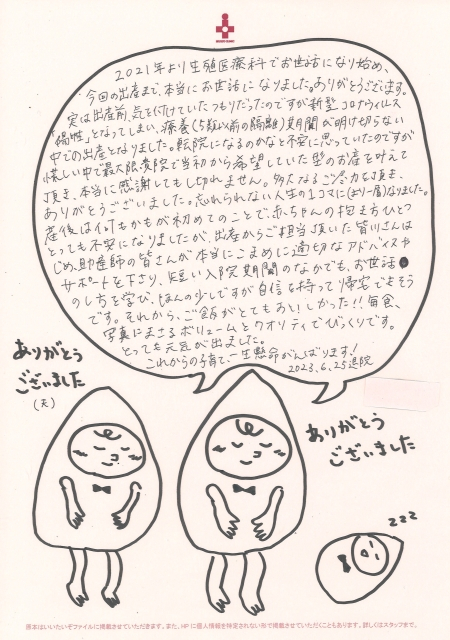 2021年より生殖医療科でお世話になり始め、
今回の出産まで、本当にお世話になりました。ありがとうございます。
実は出産前、気を付けていたつもりだったのですが新型コロナウイルス
「陽性」となってしまい、療養(5類以前の隔離)期間が明け切らない
中での出産となりました。転院になるのかなと不安に思っていたのですが
慌しい中で最大限貴院で当初から希望していた型のお産を叶えて
頂き、本当に感謝してもし切れません。多大なるご尽力を頂き、
ありがとうございました。忘れられない人生の1コマに(より一層)なりました。
産後は何もかもが初めてのことで、赤ちゃんの抱き方ひとつ
とっても不安になりましたが、出産からご担当頂いた皆川さんは
じめ、助産師の皆さんが本当にこまめに適切なアドバイスや
サポートを下さり、短い入院期間のなかでも、お世話
のし方を学び、ほんの少しですが自信を持って帰宅できそう
です。それから、ご飯がとてもおいしかった!!毎食、
写真にまさるボリュームとクオリティでびっくりです。
とっても元気が出ました。
これからの子育て、一生懸命がんばります!
2023.6.25退院
ありがとう
ございました
(夫)
ありがとう
ございました
zzz
原本はいいたいぞファイルに掲載させていただきます。また、HPに個人情報を特定されない形で掲載させていただくこともあります。詳しくはスタッフまで。